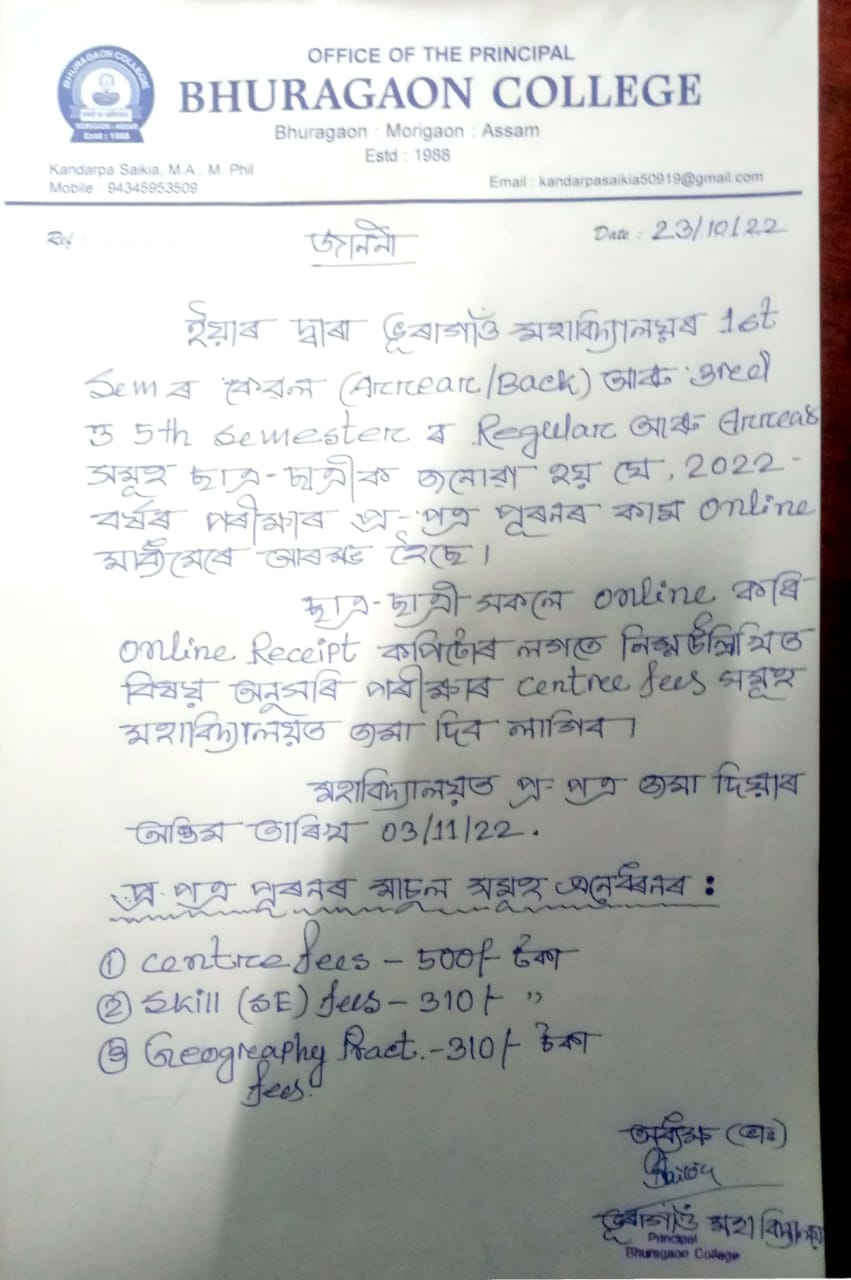 OFFICE OF THE PRINCIPAL
BHURAGAON COLLEGE
Bhuragaon : Morigaon : Assam
Estd : 1988
BHURAGAON COLLEGE
MORIGAON : ASSAM
Estd : 1988
Kandarpa Saikia, M.A., M. Phil
Mobile : 94345953509
Email : kandarpasaikia50919@gmail.com
Ref : ..............
Date : 23/10/22
জাননী
ইয়াৰ দ্বাৰা ভূৰাগাঁও মহাবিদ্যালয়ৰ 1st
Sem ৰ কেৱল (Arrear/Back) আৰু 3rd
ও 5th Semester ৰ Regular আৰু Arrear
সমূহ ছাত্ৰ-ছাত্ৰীক জনোৱা হয় যে, 2022-
বৰ্ষৰ পৰীক্ষাৰ প্ৰ-পত্ৰ পূৰনৰ কাম online
মাধ্যমেৰে আৰম্ভ হৈছে।
ছাত্ৰ-ছাত্ৰী সকলে online কৰি
online Receipt কপিটোৰ লগতে নিম্নউল্লিখিত
বিষয় অনুসৰি পৰীক্ষাৰ centre fees সমূহ
মহাবিদ্যালয়ত জমা দিব লাগিব।
মহাবিদ্যালয়ত প্ৰ-পত্ৰ জমা দিয়াৰ
অন্তিম তাৰিখ 03/11/22.
প্ৰ-পত্ৰ পূৰনৰ মাচুল সমূহ এনেধৰনৰ :
① centre fees - 500/- টকা
② Skill (SE) fees - 310/- "
③ Geography Pract. -310/- টকা
fees.
অধ্যক্ষ (ভাঃ)
ভূৰাগাঁও মহাবিদ্যালয়
Principal
Bhuragaon College